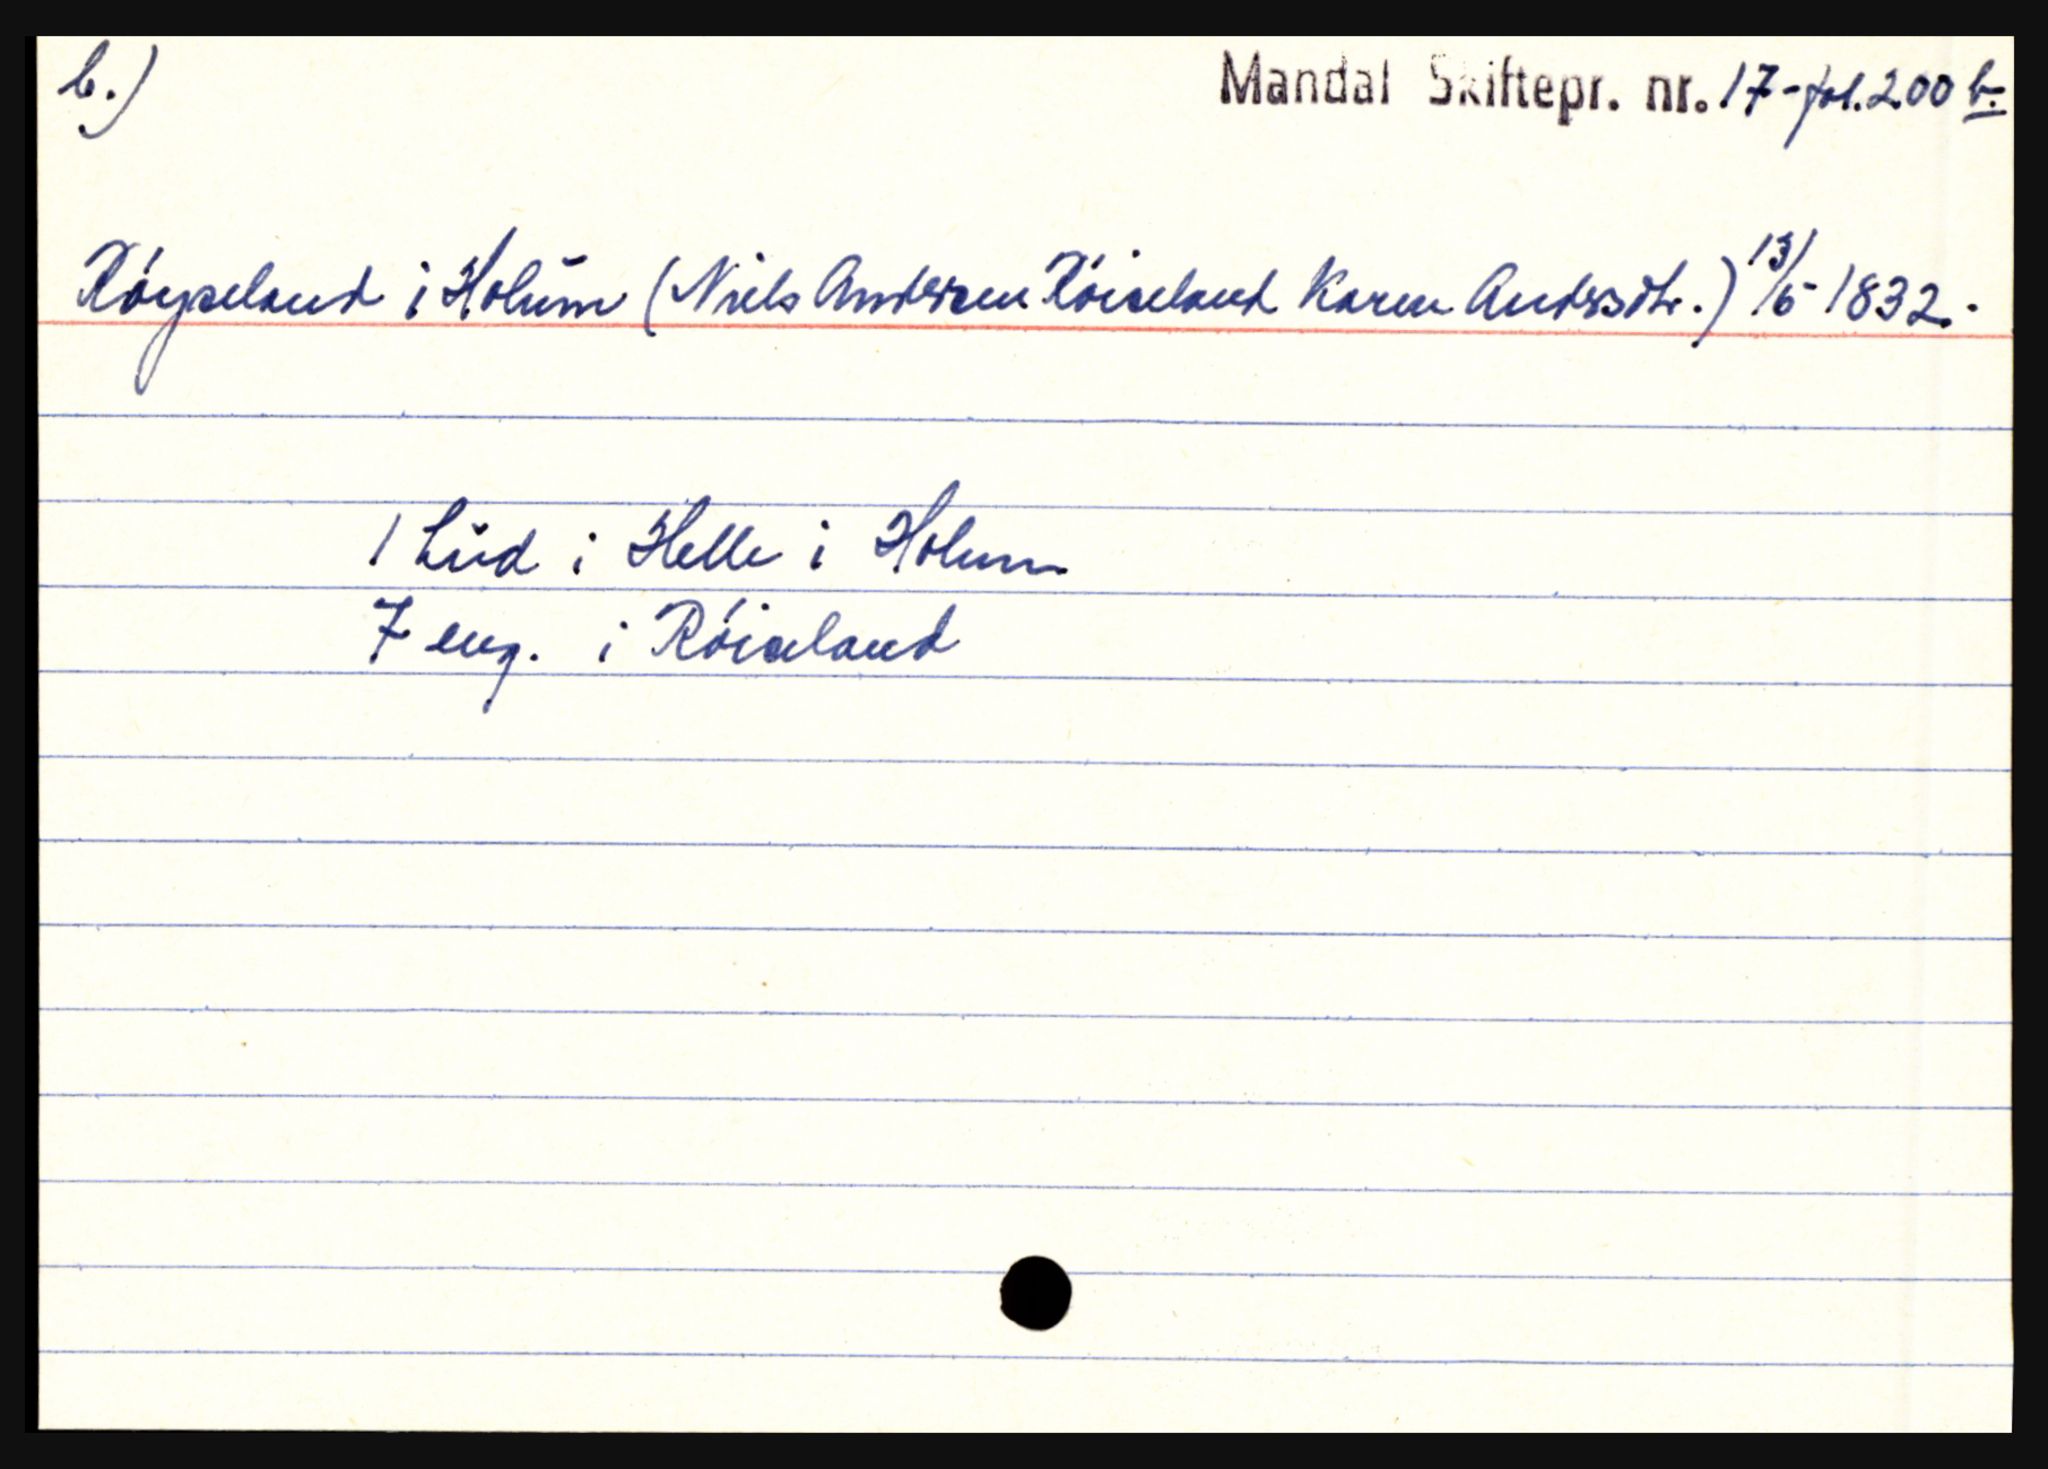 b.)
Mandal Skiftepr. nr. 17-fol. 200 b.
Røyseland i Holum (Niels Andersen Røiseland Karen Andersdtr.) 13/5-1832.-
1 hud i Helle i Holum
7 eng. i Røiseland